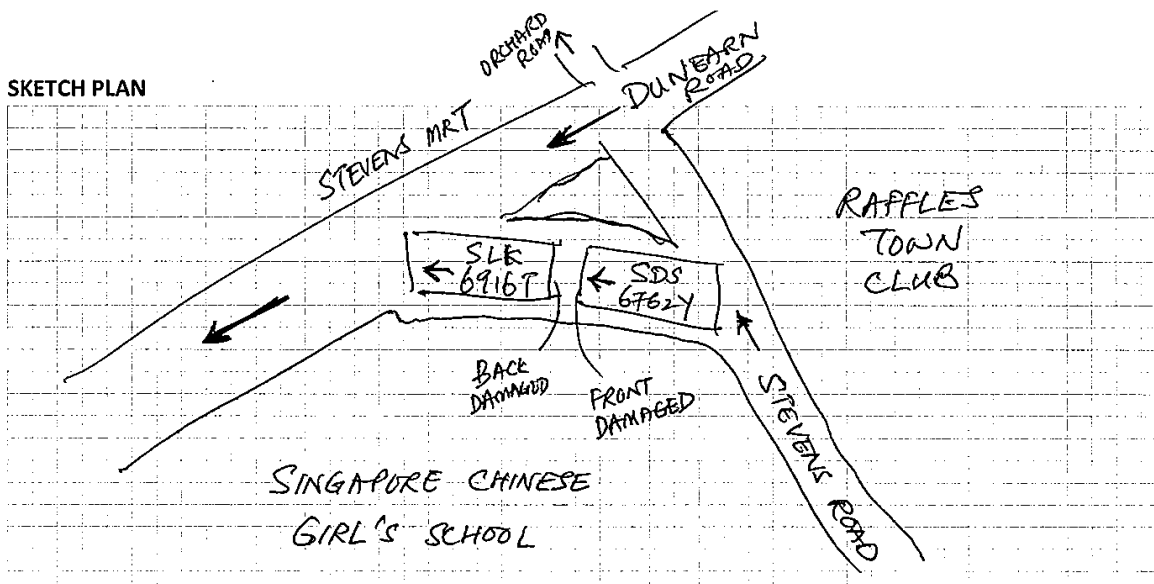 ORCHARD
ROAD
DUNEARN
ROAD
SKETCH PLAN
STEVENS MRT
RAFFLES
TOWN
CLUB
SLK
6916T
SDS
6762Y
BACK
DAMAGED
FRONT
DAMAGED
STEVENS ROAD
SINGAPORE CHINESE
GIRL'S SCHOOL